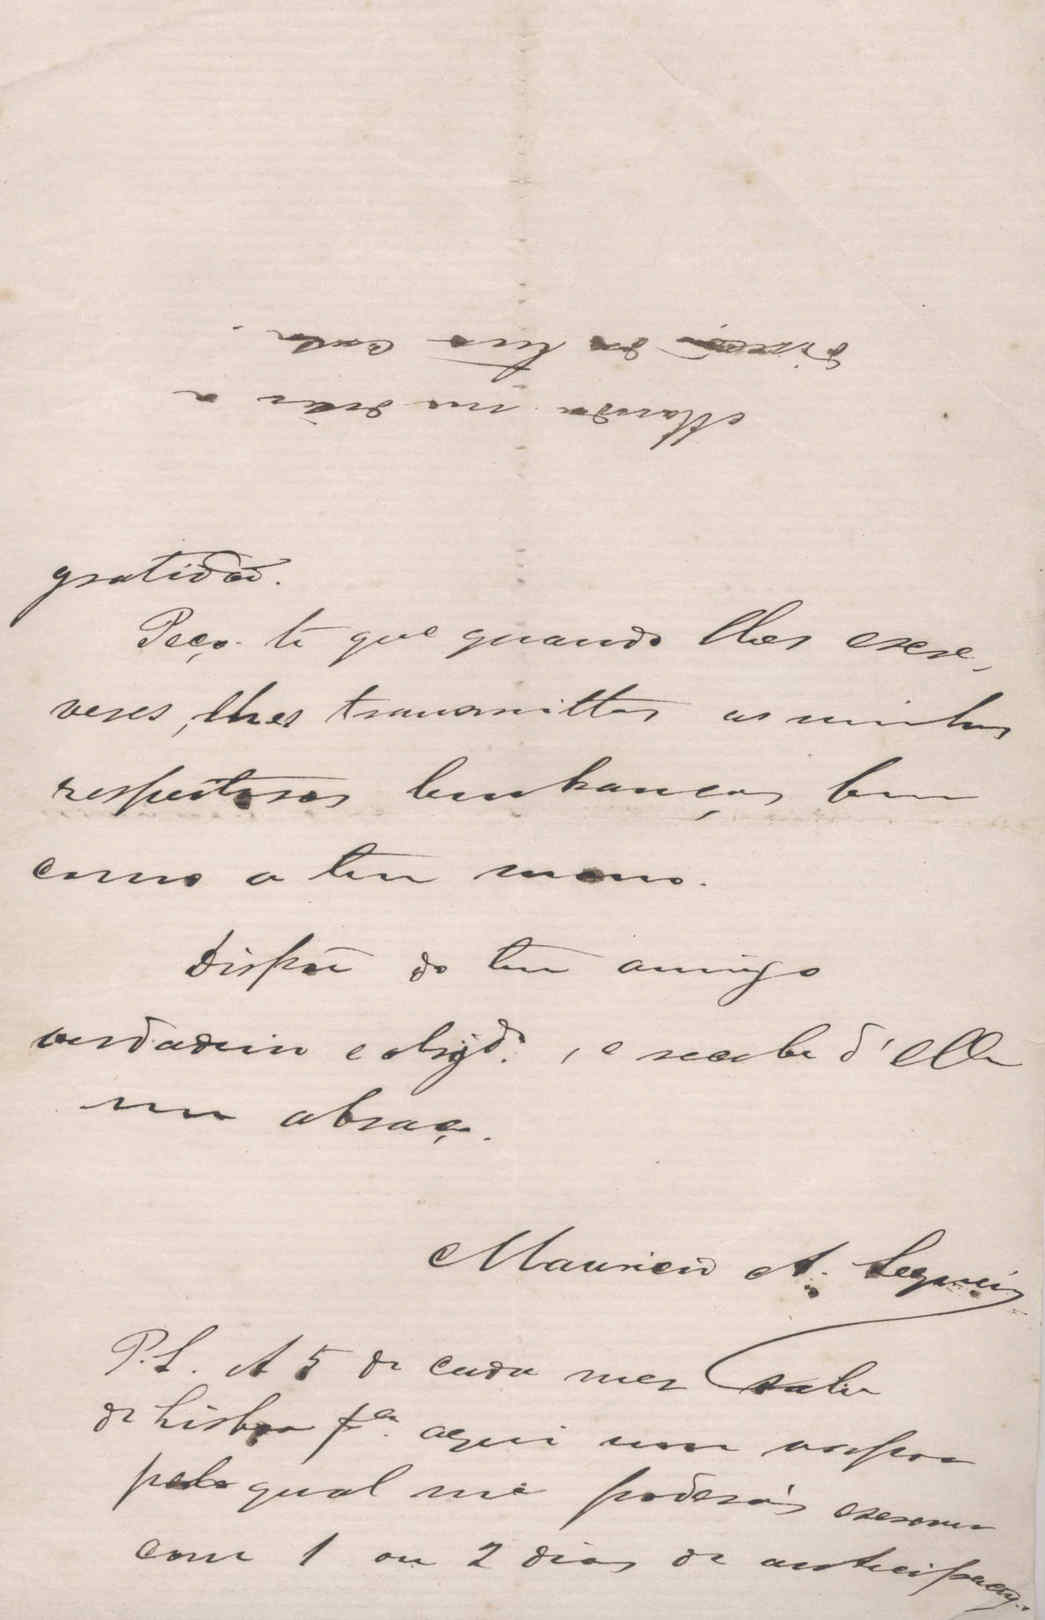 Manda-me dizer a
direcção da tua casa.
gratidão.
Peço-te que quando lhes escre-
veres, lhes transmittas as minhas
respeitosas lembranças bem
como a teu mano.
Dispõe do teu amigo
verdadeiro e obrigdº, e recebe d'elle
um abraço.
Mauricio A. Sequeira
P.S. A 5 de cada mez sahe
de Lisboa pª. aqui um vapor
pelo qual me poderás escrever
com 1 ou 2 dias de antecipação.